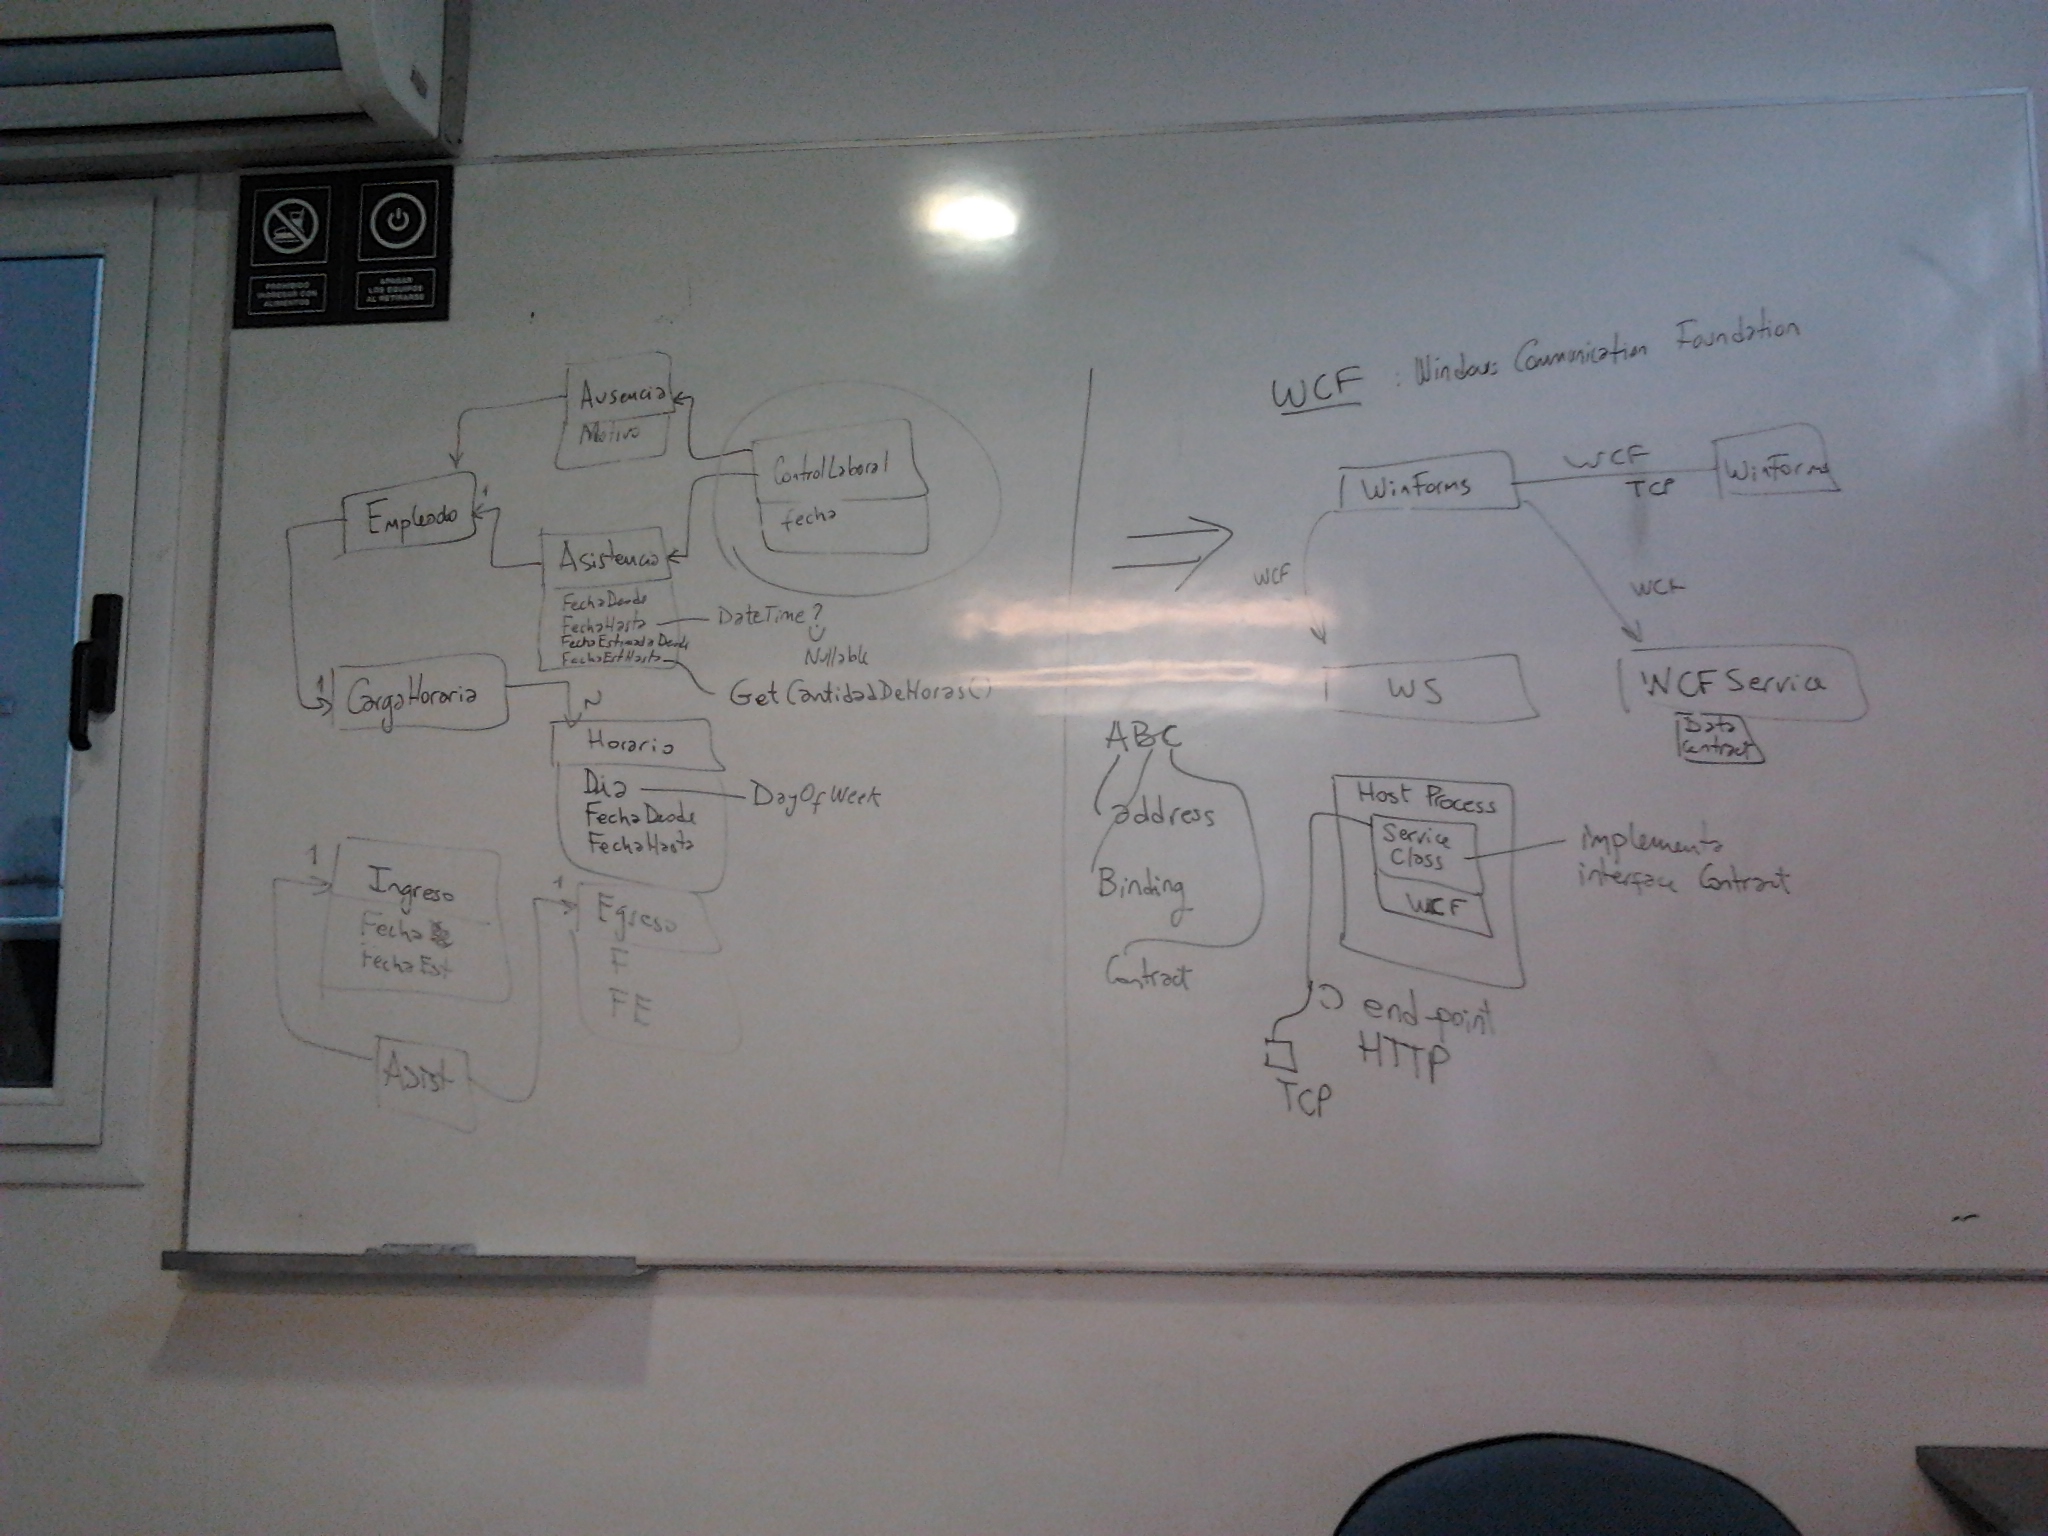 PROHIBIDO
INGRESAR CON
ALIMENTOS
APAGAR
LOS EQUIPOS
AL RETIRARSE
Ausencia
Motivo
ControlLaboral
fecha
Empleado
1
Asistencia
FechaDesde
FechaHasta
FechaEstimadaDesde
FechaEstHasta
DateTime?
Nullable
GetCantidadDeHoras()
1
CargaHoraria
N
Horario
Dia
FechaDesde
FechaHasta
DayOfWeek
1
Ingreso
Fecha
FechaEst
1
Egreso
F
FE
Asist
WCF : Windows Communication Foundation
WinForms
WCF
TCP
WinForms
WCF
WCF
WS
WCF Service
Data
Contract
ABC
address
Binding
Contract
Host Process
Service
Class
WCF
implementa
interface Contract
end-point
HTTP
TCP